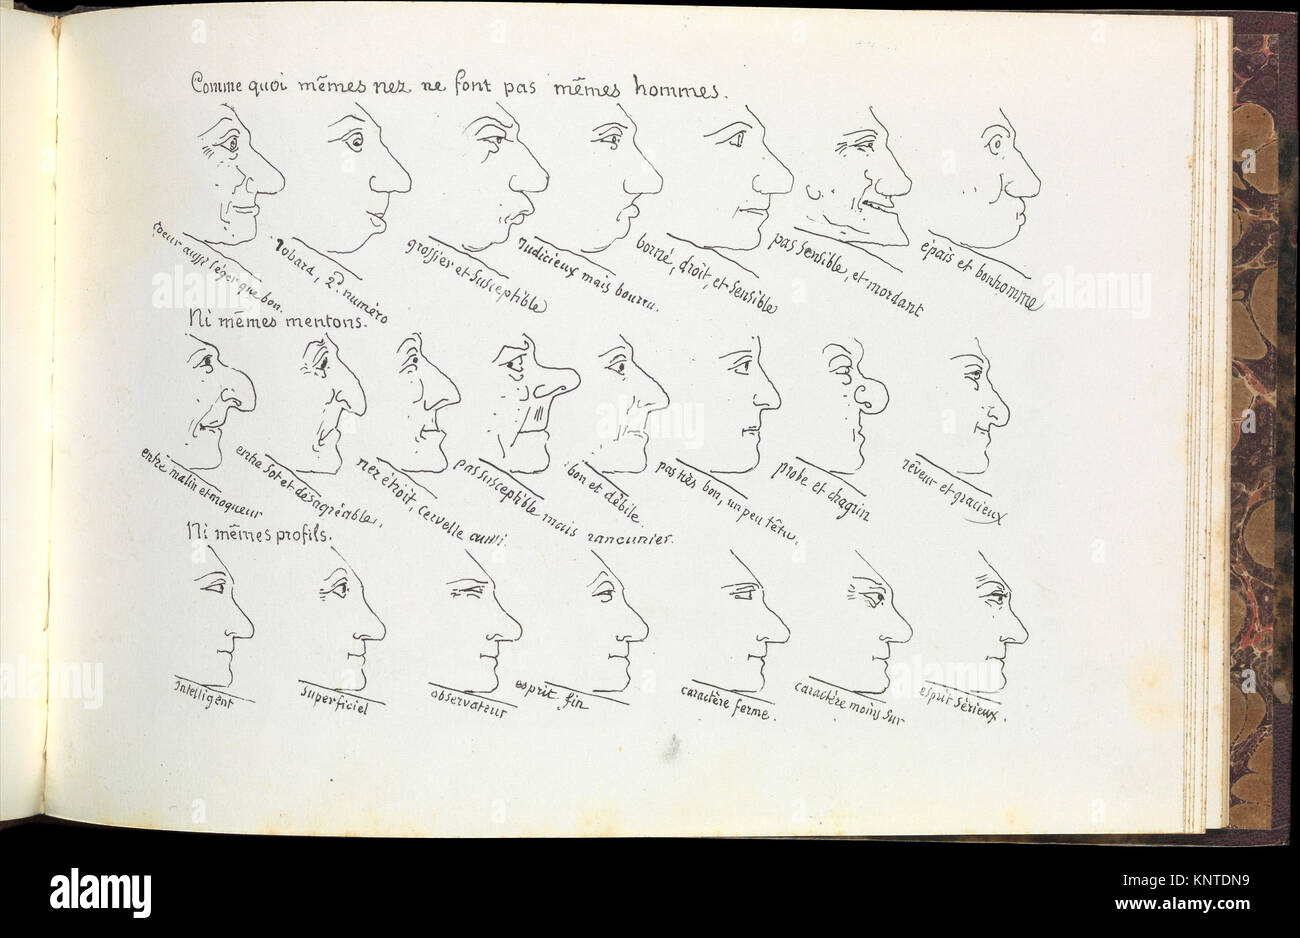 Comme quoi mêmes nez ne font pas mêmes hommes.
coeur aussi léger que bon.
Jobard, 2e. numéro
grossier et susceptible
Judicieux mais bourru.
borné, droit, et sensible
pas sensible, et mordant
épais et bonhomme
Ni mêmes mentons.
entre malin et moqueur
entre sot et désagréable,
nez étroit, cervelle aussi.
pas susceptible mais rancunier.
bon et débile.
pas très bon, un peu têtu.
probe et chagrin
rêveur et gracieux
Ni mêmes profils.
Intelligent
superficiel
observateur
esprit fin
caractère ferme.
caractère moins sur
esprit sérieux.
alamy
alamy
alamy
alamy
alamy
alamy
alamy
Image ID: KNTDN9
www.alamy.com